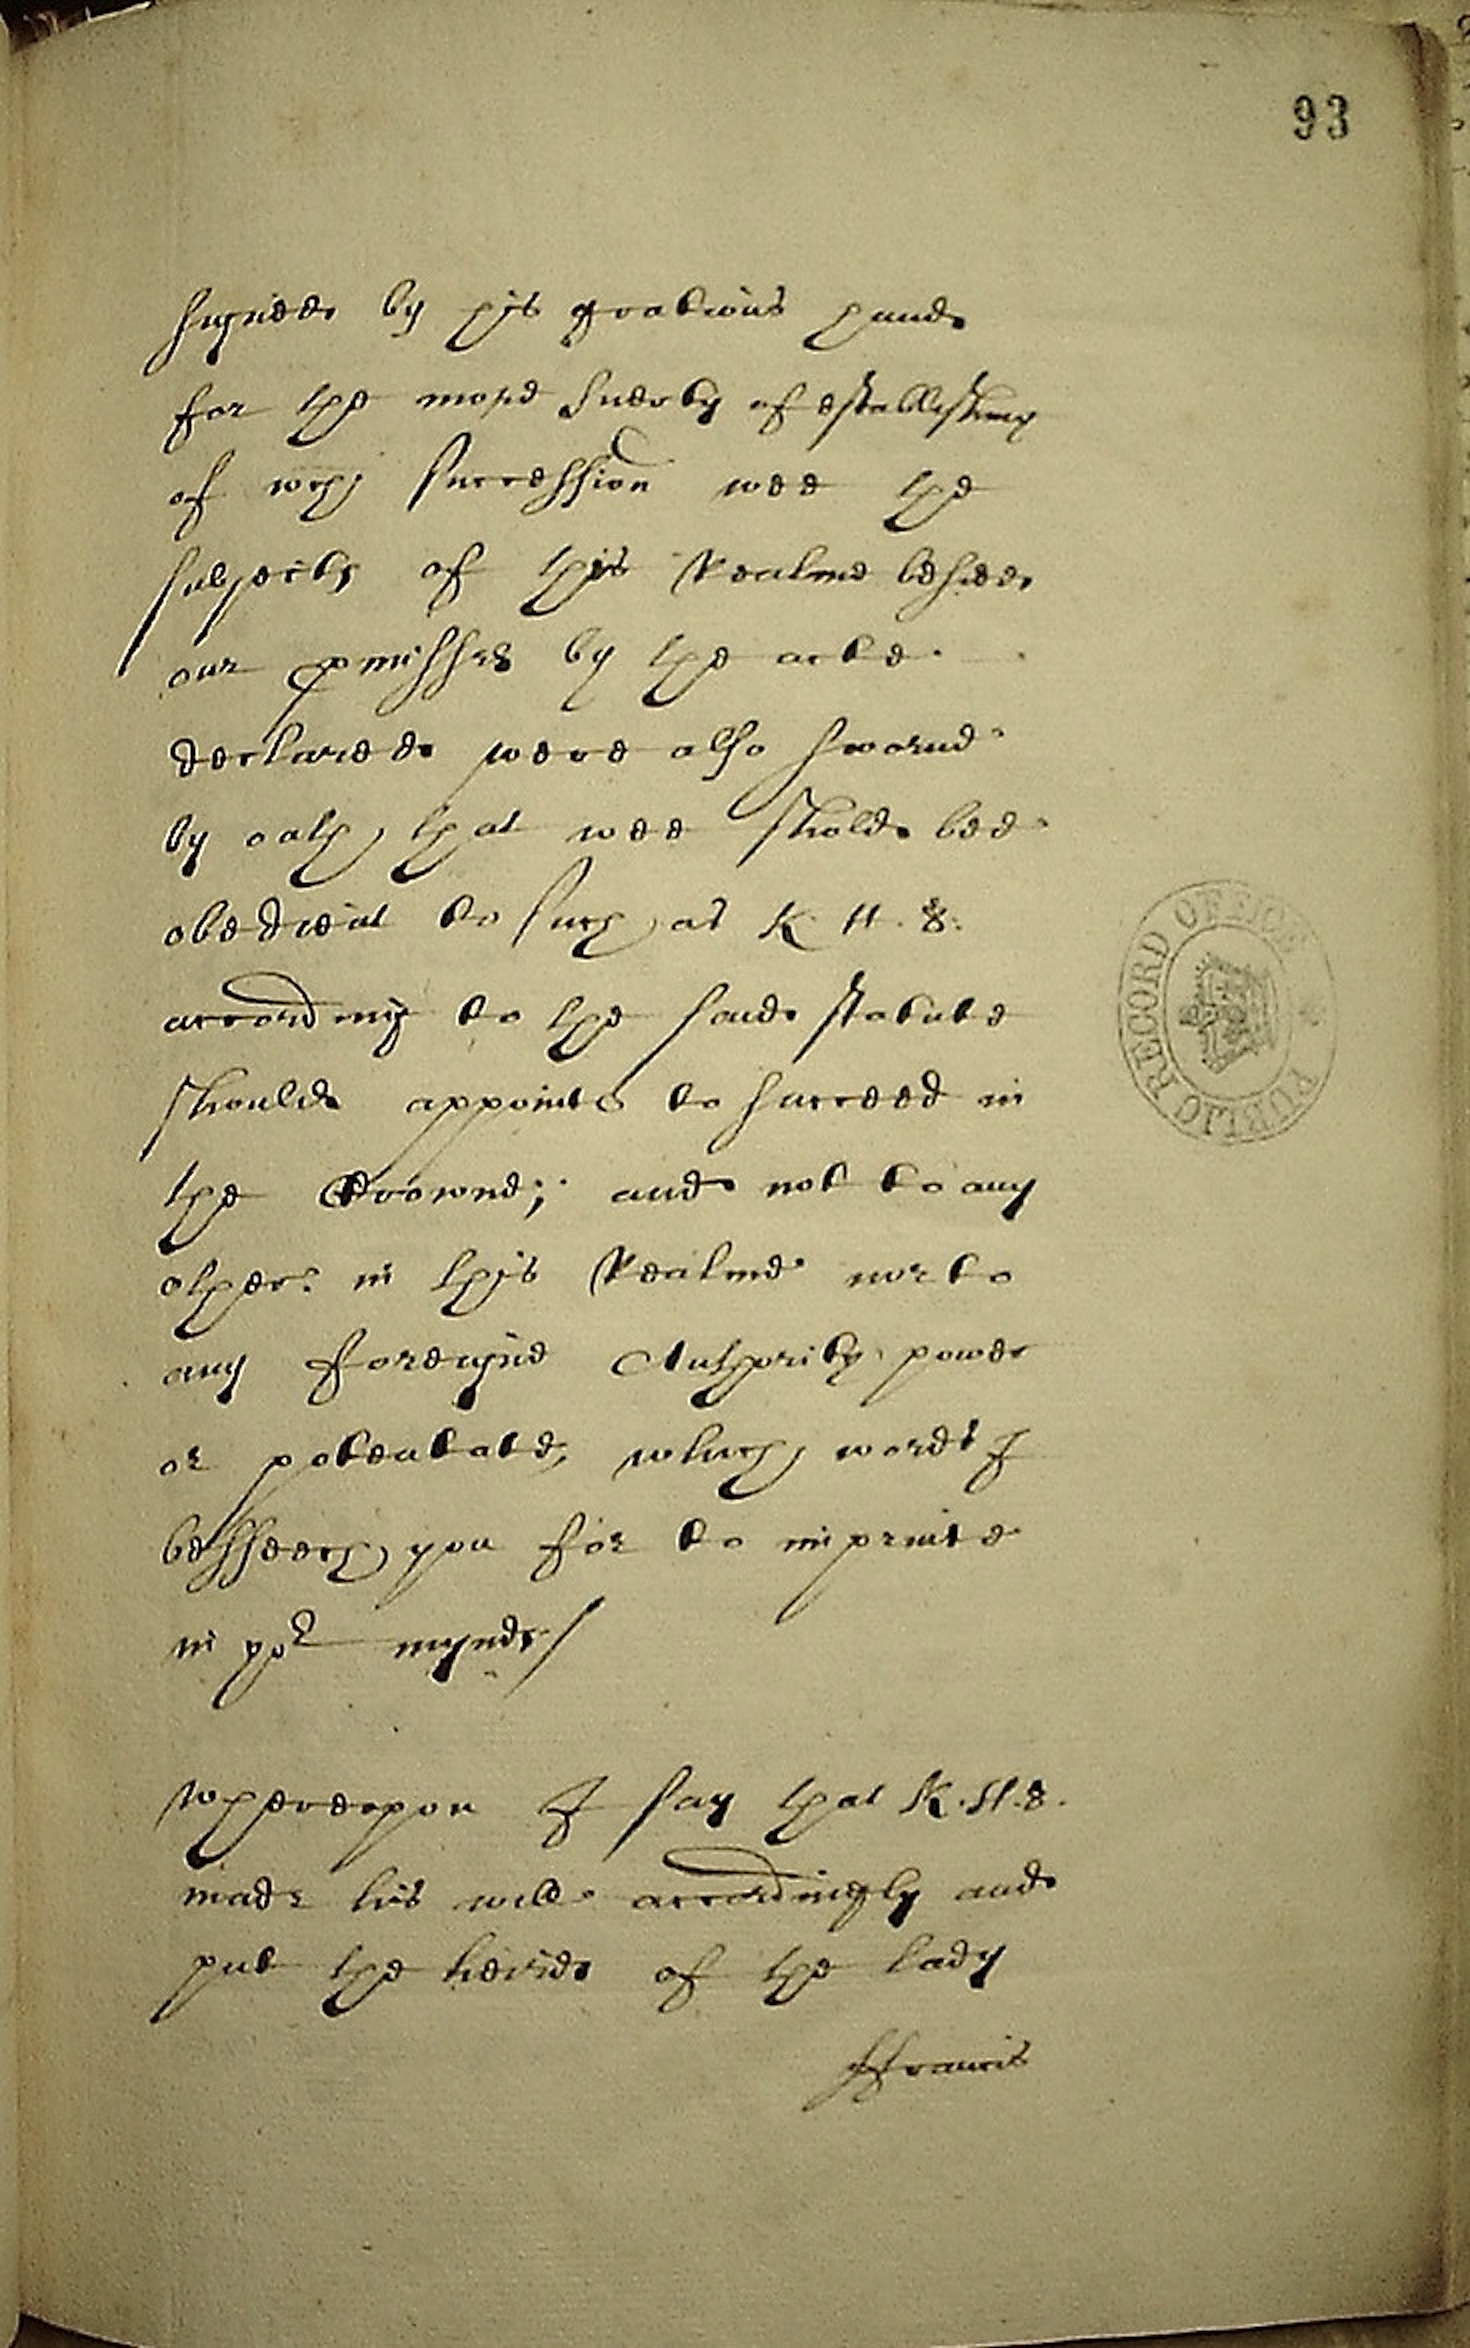 93
Signede by his gratious hande
for the more suerty of establishing
of wch Succession wee the
subjects of this Realme besides
our promisses by the acte
declarede were also sworne
by oath, that wee sholde bee
obedient to such as K H. 8.
according to the saide statute
shoulde appointe to succeed in
the Crowne; and not to any
other in this Realme nor to
any foreigne Authority power
or potentate, which words I
besseech you for to imprinte
in yor mynde/
Whereupon I say that K. H. 8.
made his will accordingly and
put the heires of the lady
ffrancis
PUBLIC RECORD OFFICE